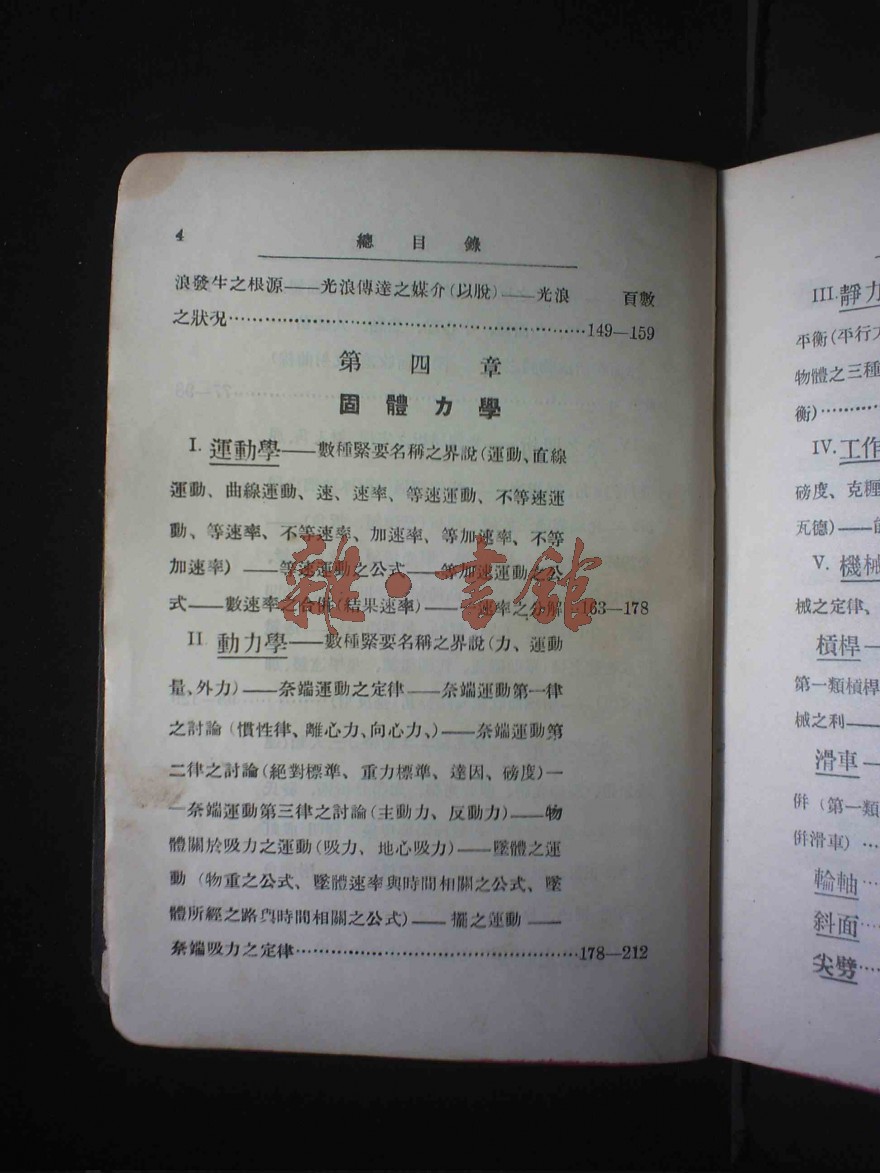 4
總目錄
浪發生之根源——光浪傳達之媒介(以脫)——光浪 頁數
之狀况……………………………………………149—159
第四章
固體力學
I. 運動學——數種緊要名稱之界說(運動、直線
運動、曲線運動、速、速率、等速運動、不等速運
動、等速率、不等速率、加速率、等加速率、不等
加速率)——等速運動之公式——等加速運動之公
式——數速率之合併(結果速率)——速率之分解163—178
II 動力學——數種緊要名稱之界說(力、運動
量、外力)——奈端運動之定律——奈端運動第一律
之討論(慣性律、離心力、向心力、)——奈端運動第
二律之討論(絕對標準、重力標準、達因、磅度)—
—奈端運動第三律之討論(主動力、反動力)——物
體關於吸力之運動(吸力、地心吸力)——墜體之運
動(物重之公式、墜體速率與時間相關之公式、墜
體所經之路與時間相關之公式)——擺之運動——
奈端吸力之定律……………………………………178—212
雜·書館
III.靜力
平衡(平行
物體之三種
衡)……
IV.工作
磅度、克
瓦德)——
V. 機械
械之定律、
槓桿—
第一類槓桿
械之利——
滑車—
併(第一類
併滑車)…
輪軸…
斜面…
尖劈…